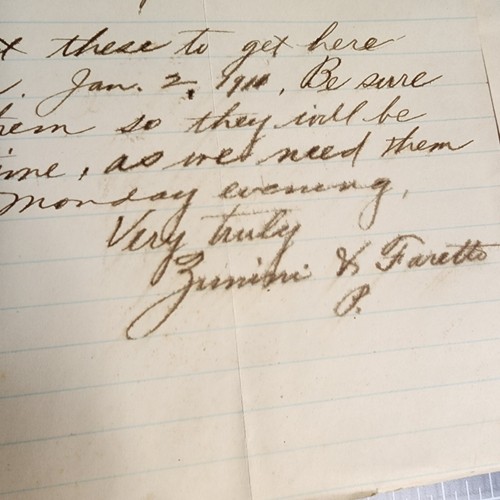 these to get here
Jan. 2, 1911, Be sure
so they will be
as we need them
Monday evening,
Very truly
Zunini & Faretto
P.